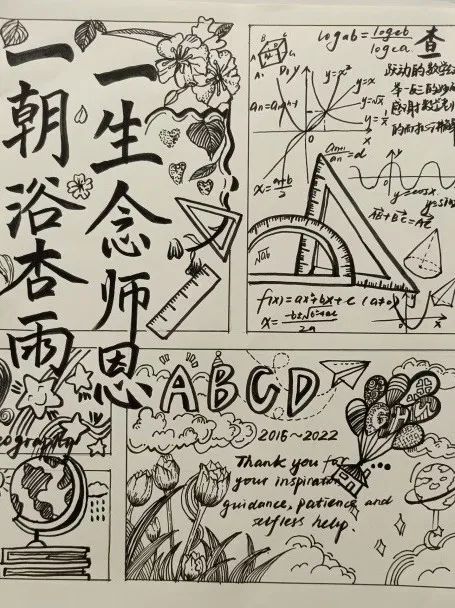 一朝浴杏雨
一生念师恩
logab = logcb
logca
查
跃动的数学
感谢数学老
y=x²
y=x
y=√x
y=1/x
an+1/an=d
x=a+b/2
y=cosx
AB+BC=AC
√ab
f(x)=ax²+bx+c (a≠0)
x=-b±√b²-4ac
2a
ABCD
2016~2022
Thank you for
your inspiration
guidance, patience and
selfless help.